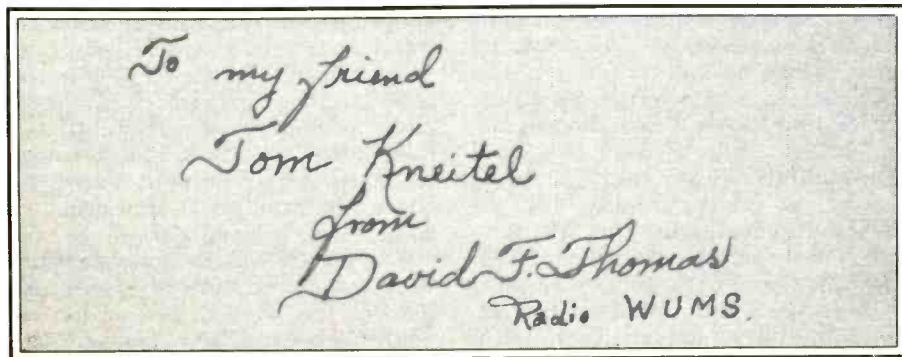 To my friend
Tom Kneitel
from
David F. Thomas
Radio WUMS.